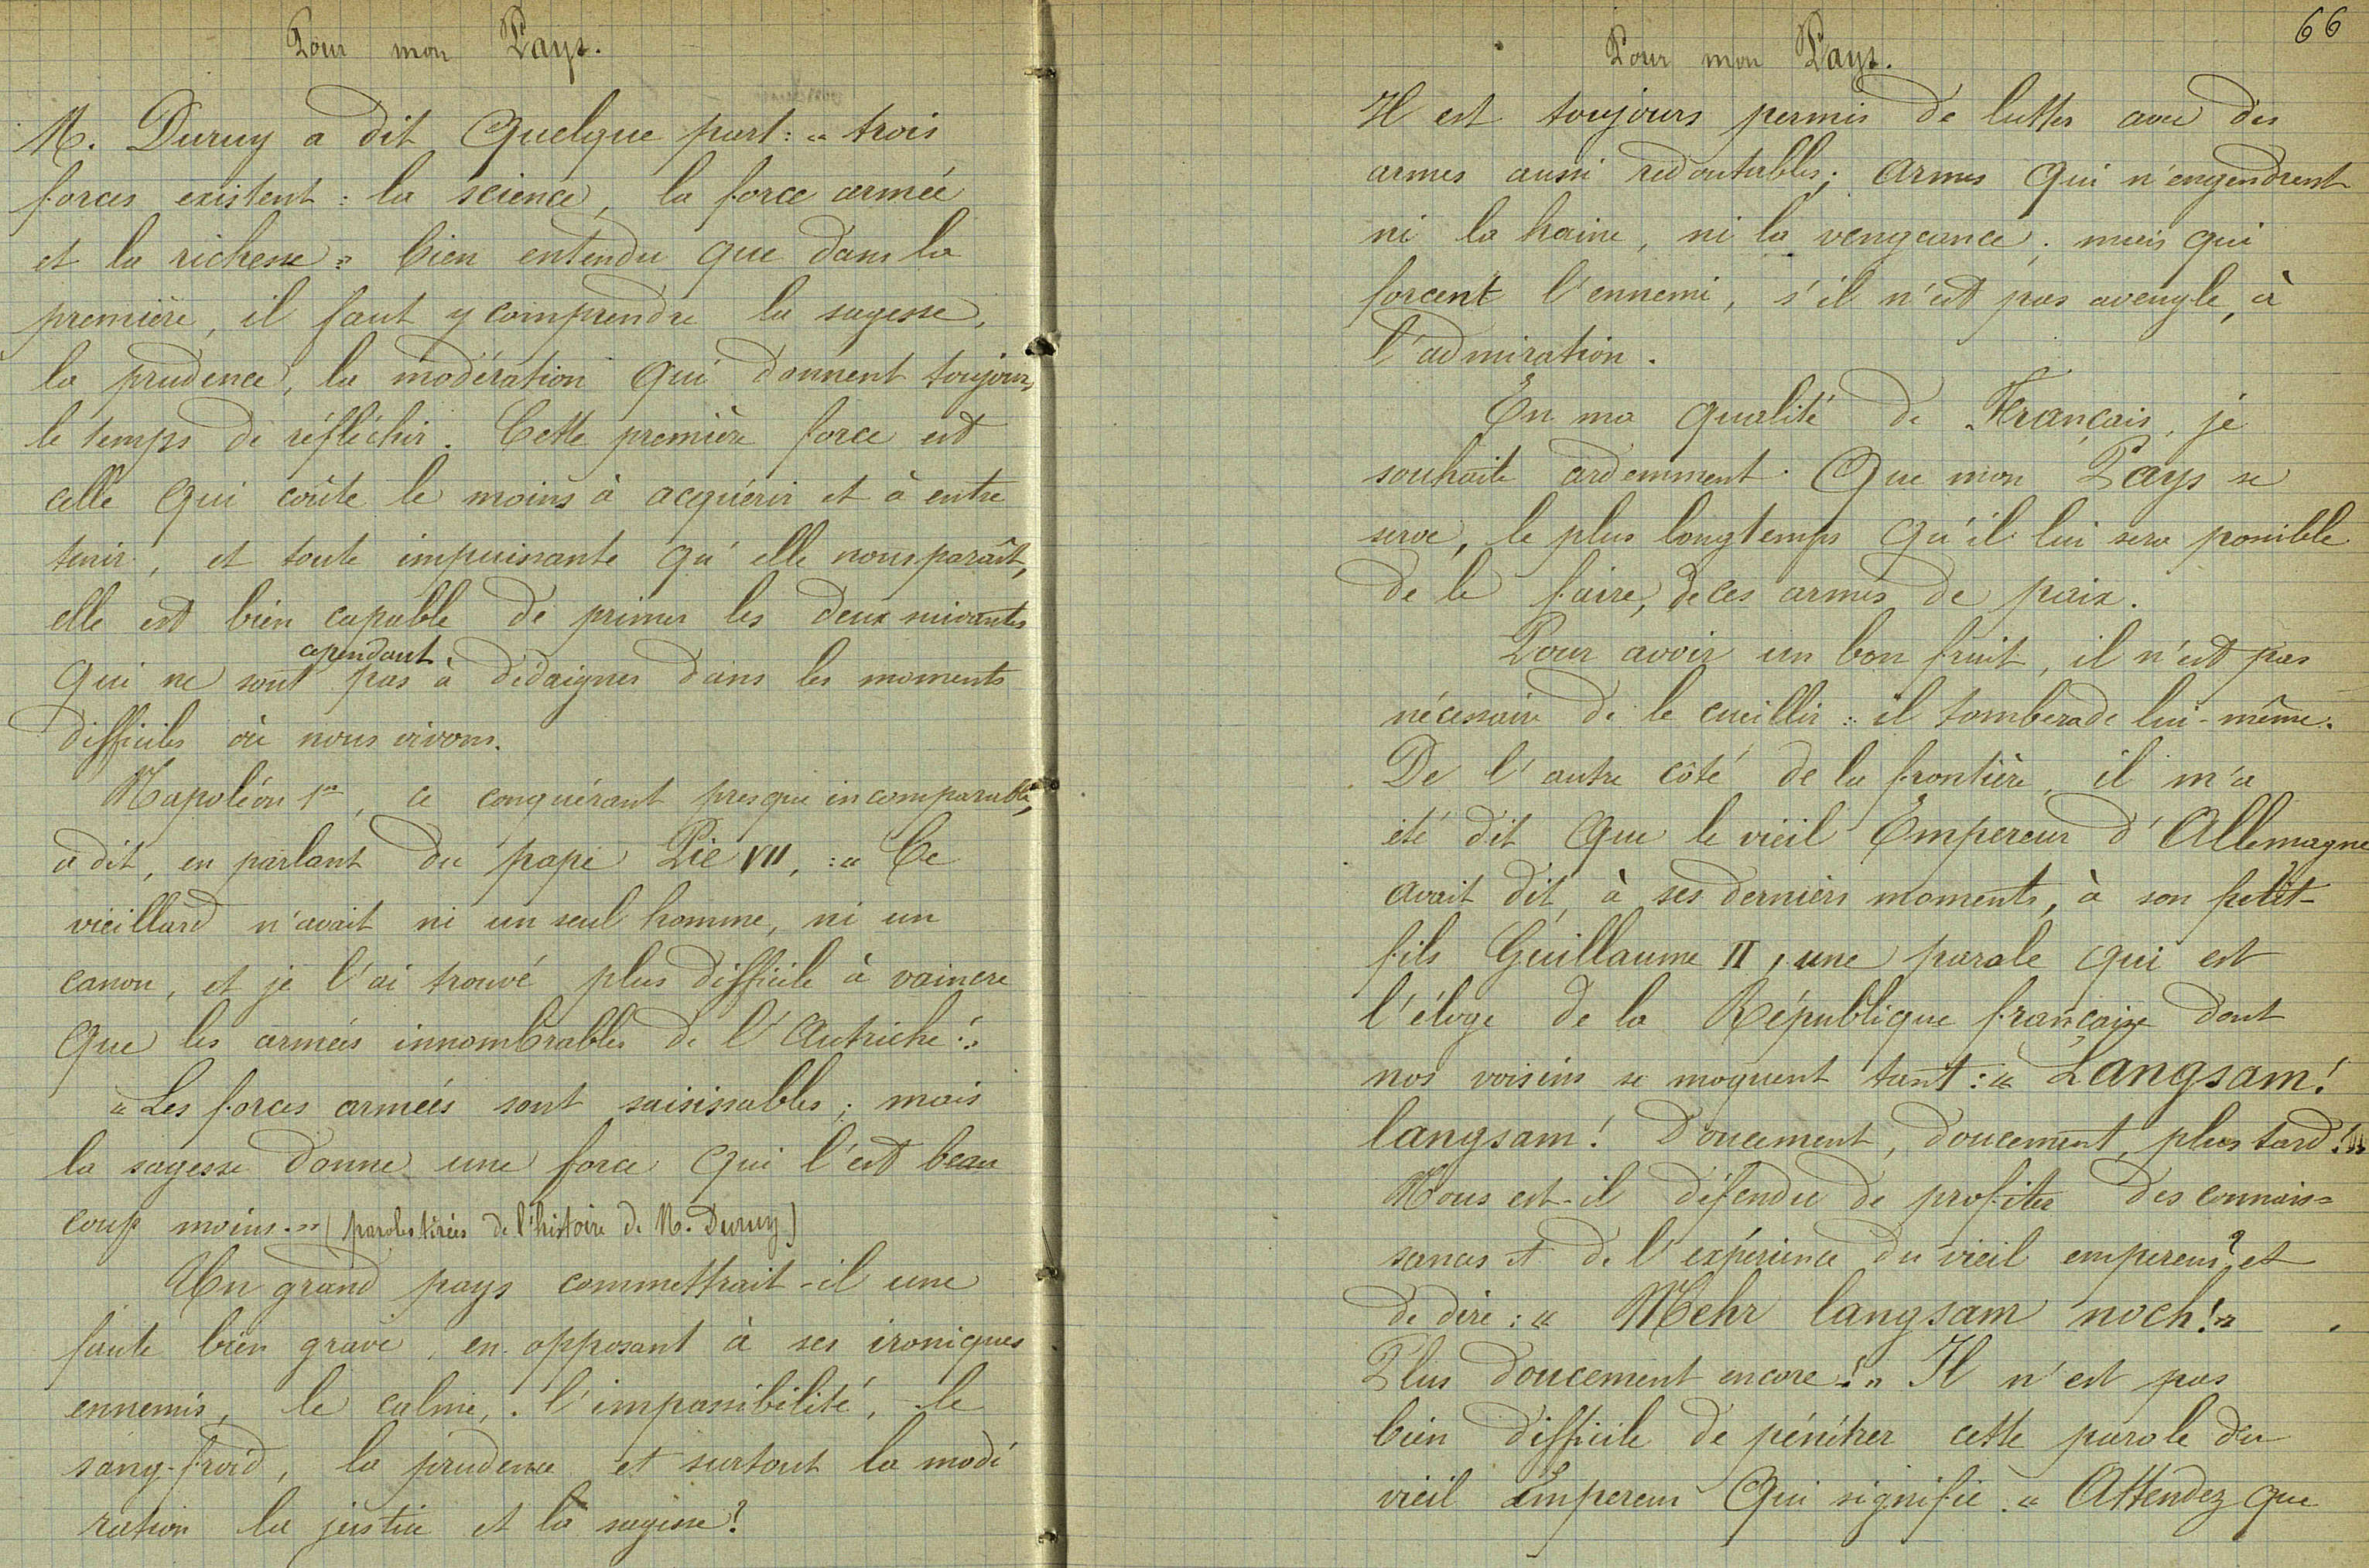 Pour mon Pays.
M. Duruy a dit quelque part : « trois
forces existent : la science, la force armée
et la richesse » bien entendu que dans la
première, il faut y comprendre la sagesse,
la prudence, la modération qui donnent toujours
le temps de réfléchir. Cette première force est
celle qui coûte le moins à acquérir et à entre
tenir, et toute impuissante qu'elle nous paraît,
elle est bien capable de primer les deux suivantes
qui ne sont cependant pas à dédaigner dans les moments
difficiles où nous vivons.
Napoléon 1er, ce conquérant presque incomparable,
a dit, en parlant du pape Pie VII, : « Ce
vieillard n'avait ni un seul homme, ni un
canon, et je l'ai trouvé plus difficile à vaincre
que les armées innombrables de l'Autriche ! »
« Les forces armées sont saisissables ; mais
la sagesse donne une force qui l'est beau
coup moins. » (paroles tirées de l'histoire de M. Duruy)
Un grand pays commettrait-il une
faute bien grave, en opposant à ses ironiques
ennemis, le calme, l'impassibilité, le
sang-froid, la prudence et surtout la modé
ration la justice et la sagesse ?
66
Pour mon Pays.
Il est toujours permis de lutter avec des
armes aussi redoutables ; armes qui n'engendrent
ni la haine, ni la vengeance ; mais qui
forcent l'ennemi, s'il n'est pas aveugle, à
l'admiration.
En ma qualité de Français, je
souhaite ardemment que mon Pays se
serve, le plus longtemps qu'il lui sera possible
de le faire, de ces armes de paix.
Pour avoir un bon fruit, il n'est pas
nécessaire de le cueillir : il tombera de lui-même.
De l'autre côté de la frontière, il m'a
été dit que le vieil Empereur d'Allemagne
avait dit, à ses derniers moments, à son petit-
fils Guillaume II, une parole qui est
l'éloge de la République française dont
nos voisins se moquent tant : « Langsam !
langsam ! Doucement, doucement, plus tard ! »
Nous est-il défendu de profiter des connais=
sances et de l'expérience du vieil empereur ? et
de dire : « Mehr langsam noch ! »
Plus doucement encore ! » Il n'est pas
bien difficile de pénétrer cette parole du
vieil Empereur qui signifie : « Attendez que